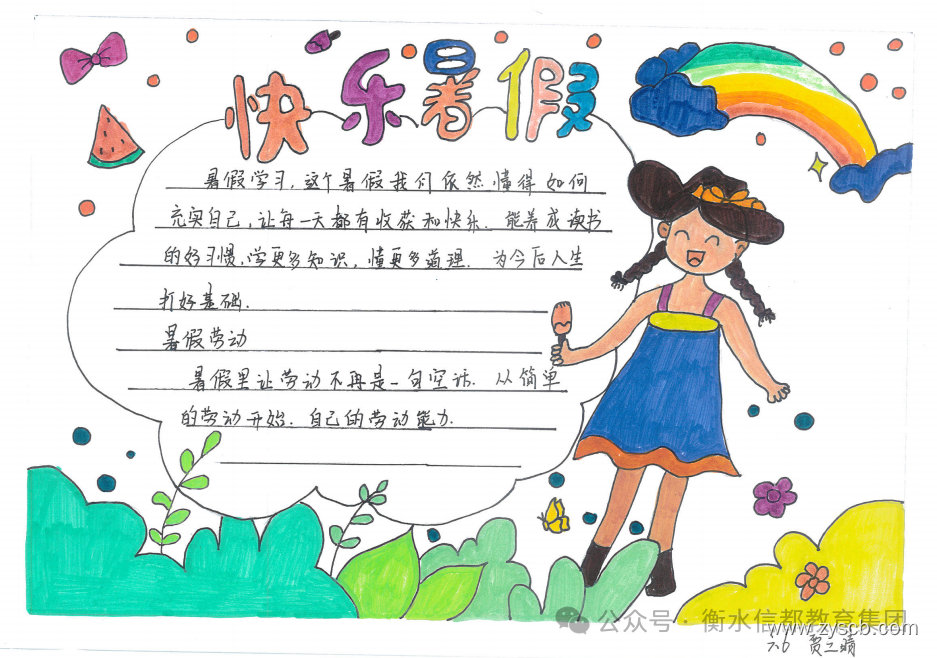 快乐暑假
暑假学习，这个暑假我们依然懂得如何
充实自己，让每一天都有收获和快乐．能养成读书
的好习惯，学更多知识，懂更多道理．为今后人生
打好基础．
暑假劳动
暑假里让劳动不再是一句空话．从简单
的劳动开始．自己的劳动能力．
公众号·衡水信都教育集团
www.zyscb.com
6